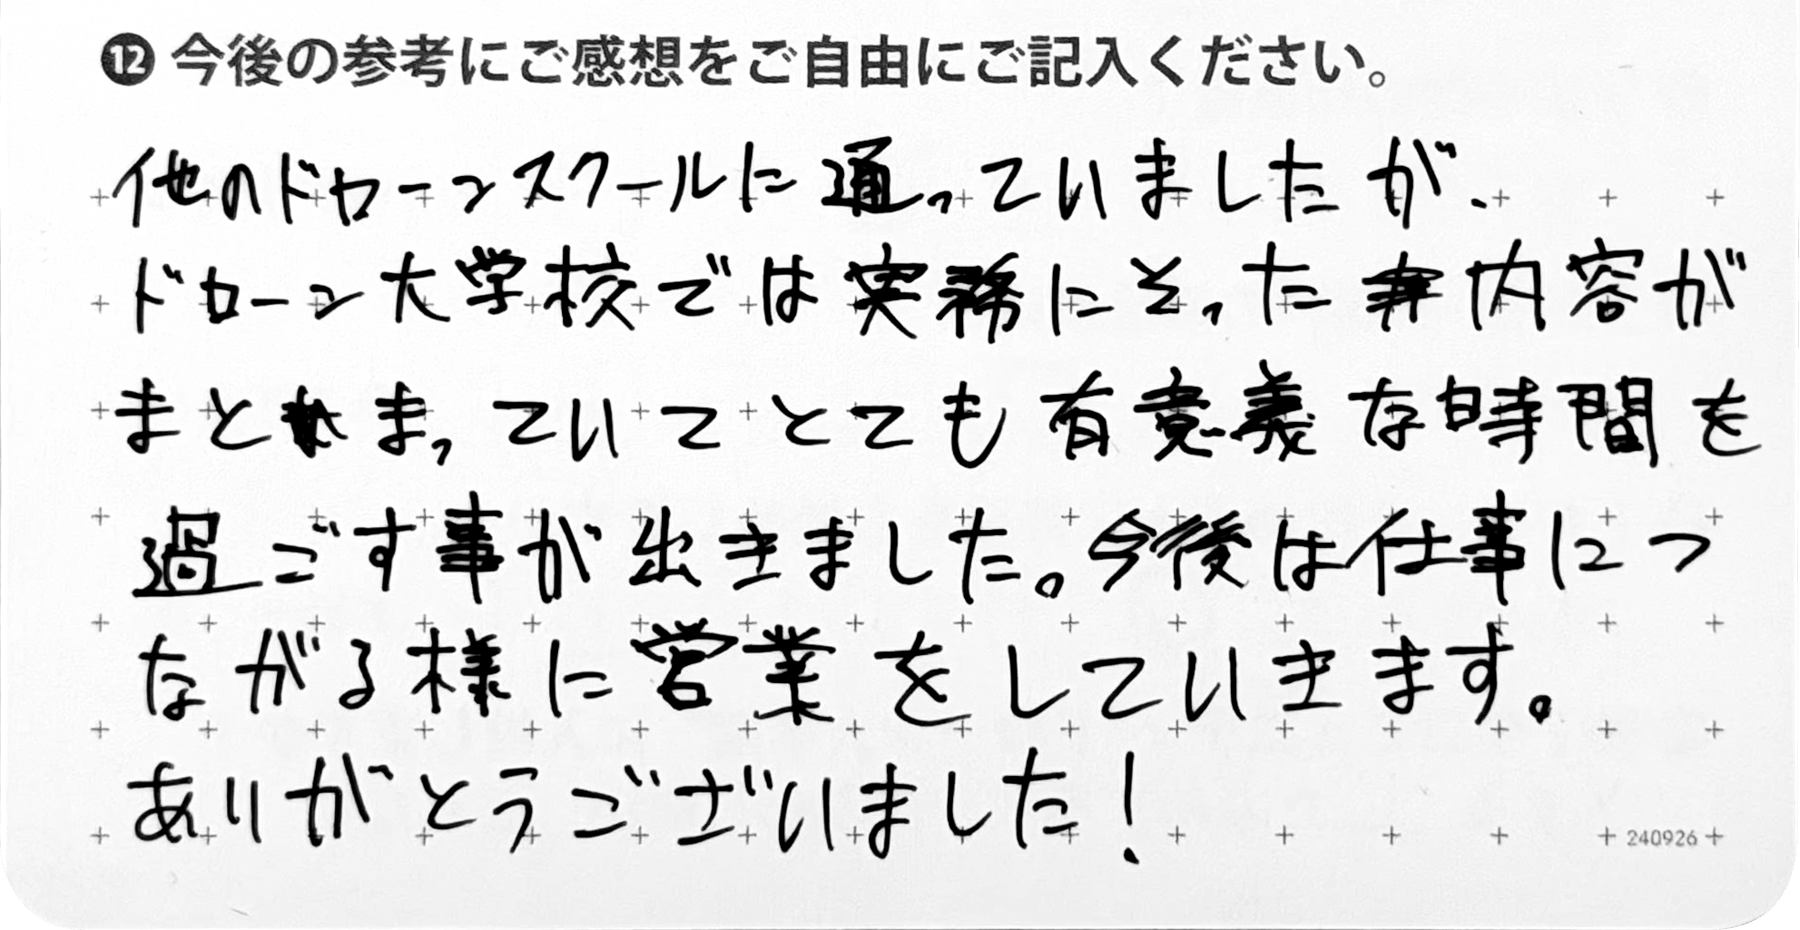 ⓬ 今後の参考にご感想をご自由にご記入ください。
他のドローンスクールに通っていましたが、
ドローン大学校では実務にそった内容が
まとまっていてとても有意義な時間を
過ごす事が出きました。今後は仕事につ
ながる様に営業をしていきます。
ありがとうございました!
240926